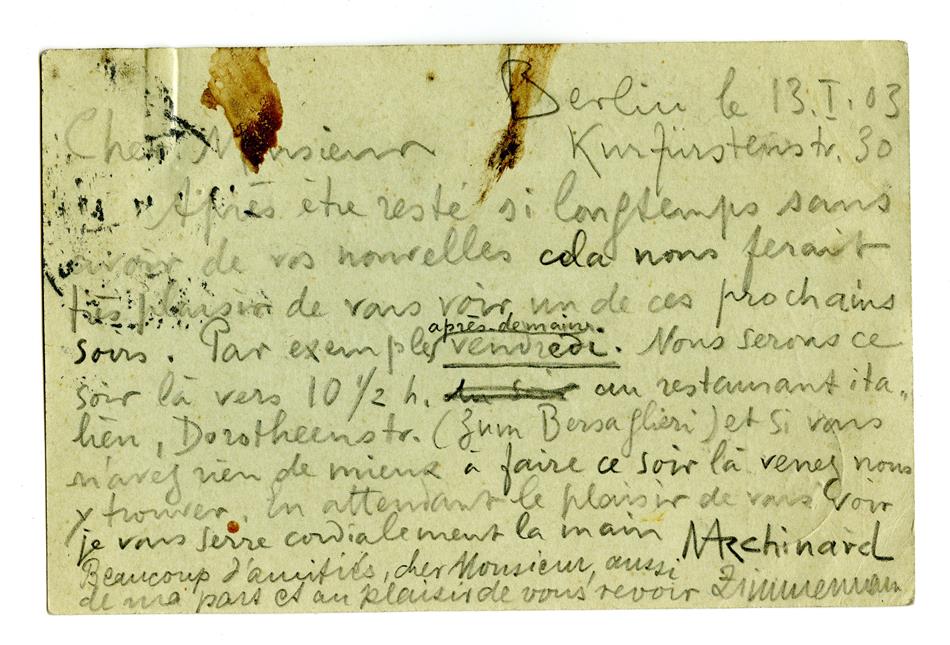 Berlin le 13.I.03
Cher Monsieur Kurfürstenstr. 30
Après être resté si longtemps sans
avoir de vos nouvelles cela nous ferait
très plaisir de vous voir un de ces prochains
soirs. Par exemple après-demain vendredi. Nous serons ce
soir là vers 10 1/2 h. au restaurant ita-
lien, Dorotheenstr. (Zum Bersaglieri) et si vous
n'avez rien de mieux à faire ce soir là venez nous
y trouver. En attendant le plaisir de vous voir
je vous serre cordialement la main MArchinard
Beaucoup d'amitiés, cher Monsieur, aussi
de ma part et au plaisir de vous revoir Zimmermann